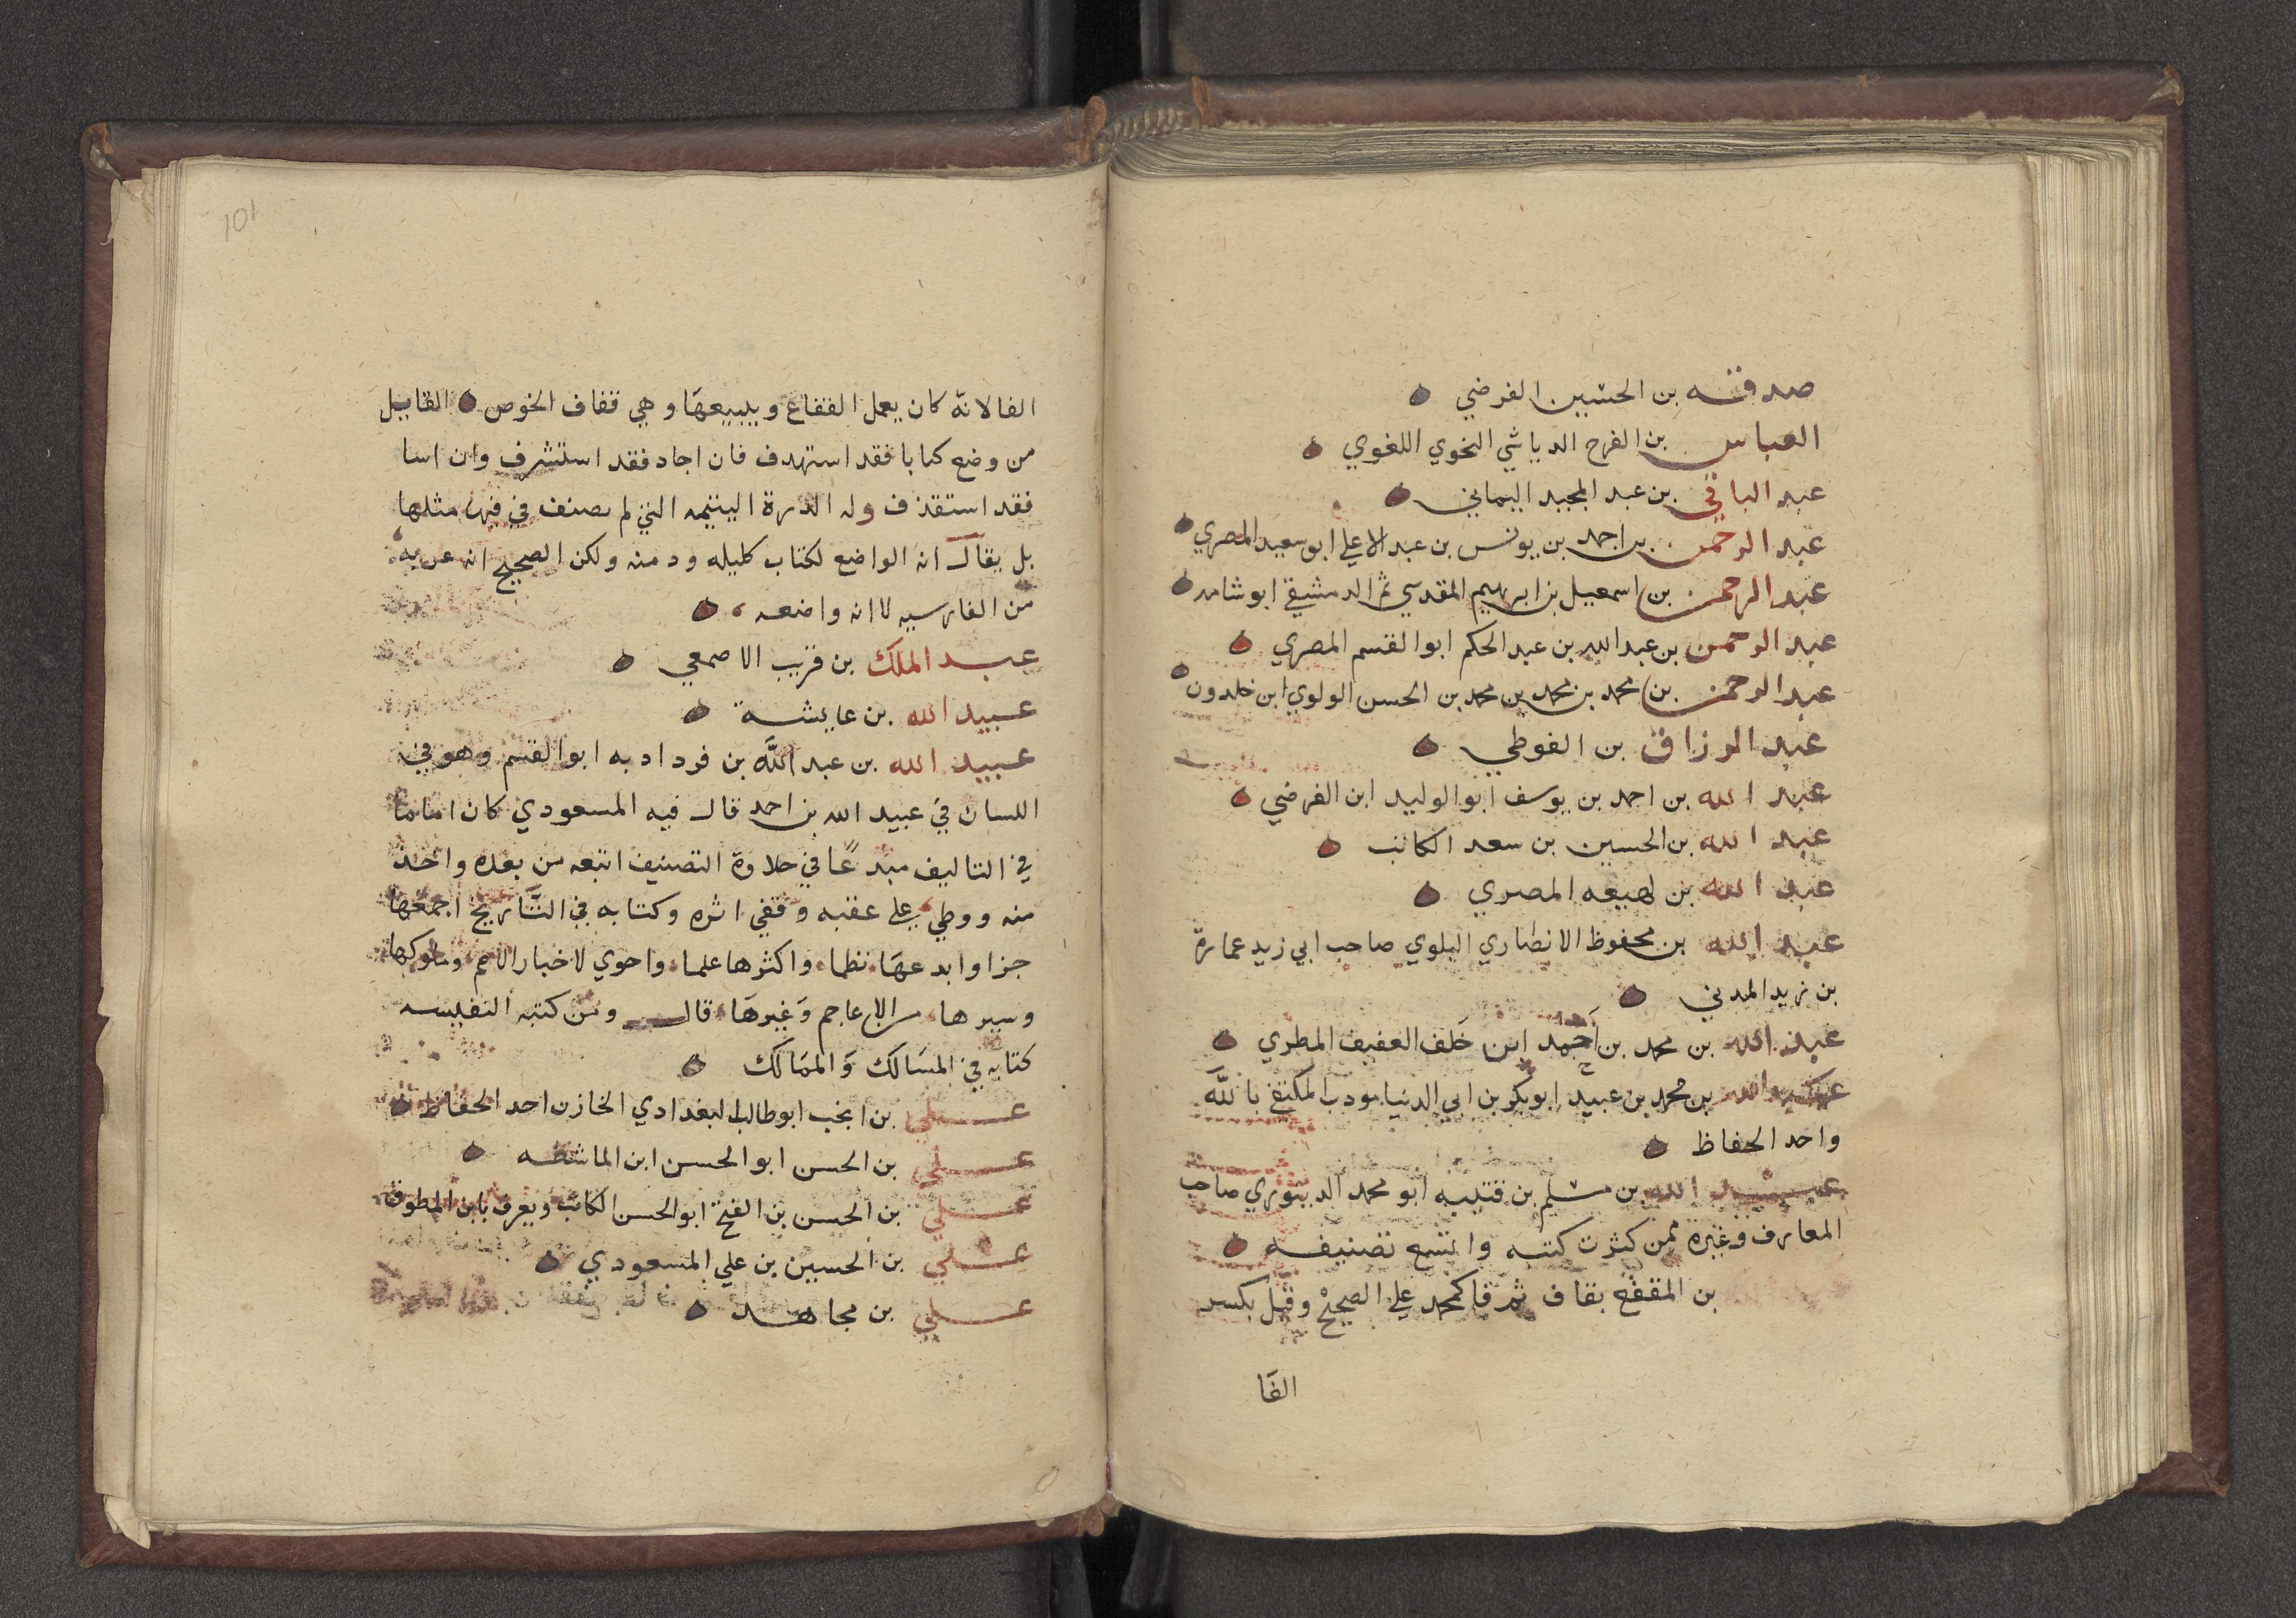 صدقه بن الحسين الفرضي
العباس بن الفرج الرياشي النحوي اللغوي
عبد الباقي بن عبد المجيد اليماني
عبد الرحمن بن احمد بن يونس بن عبد الاعلي ابو سعيد المصري
عبد الرحمن بن اسمعيل بن ابرهيم المقدسي ثم الدمشقي ابو شامه
عبد الرحمن بن عبد الله بن عبد الحكم ابو القسم المصري
عبد الرحمن بن محمد بن محمد بن محمد بن الحسن الولوي ابن خلدون
عبد الرزاق بن الفوطي
عبد الله بن احمد بن يوسف ابو الوليد ابن الفرضي
عبد الله بن الحسين بن سعد الكاتب
عبد الله بن لهيعه المصري
عبد الله بن محفوظ الانصاري البلوي صاحب ابي زيد عمارة
بن زيد المدني
عبد الله بن محمد بن احمد ابن خلف العفيف المطري
عبد الله بن محمد بن عبيد ابو بكر بن ابي الدنيا مودب المكتفي بالله
واحد الحفاظ
عبد الله بن مسلم بن قتيبه ابو محمد الدينوري صاحب
المعارف وغيره ممن كثرت كتبه واتسع تصنيفه
بن المقفع بقاف ثم فا كمحمد علي الصحيح وقيل بكسر
الفا
101
الفا لانه كان يعمل القفاع ويبيعها وهي قفاف الخوص القايل
من وضع كتابا فقد استهدف فان اجاد فقد استشرف وان اسا
فقد استقذف وله الدرة اليتيمه التي لم يصنف في فنها مثلها
بل يقال انه الواضع لكتاب كليله ودمنه ولكن الصحيح انه عربه
من الفارسيه لا انه واضعه
عبد الملك بن قريب الاصمعي
عبيد الله بن عايشة
عبيد الله بن عبد الله بن خرداد به ابو القسم وهو في
اللسان في عبيد الله بن احمد قال فيه المسعودي كان اماما
في التاليف مبدعا في حلاوة التصنيف اتبعه من بعده واخذ
منه ووطي علي عقبه وقفي اثره وكتابه في التاريخ اجمعها
جزا وابدعها نظما واكثرها علما واحوي لاخبار الامم وملوكها
وسيرها من الاعاجم وغيرها قال ومن كتبه النفيسه
كتابه في المسالك والممالك
علي بن انجب ابو طالب البغدادي الخازن احد الحفاظ
علي بن الحسن ابو الحسن ابن الماشطه
علي بن الحسن بن الفتح ابو الحسن الكاتب ويعرف بابن المطوق
علي بن الحسين بن علي المسعودي
علي بن مجاهد